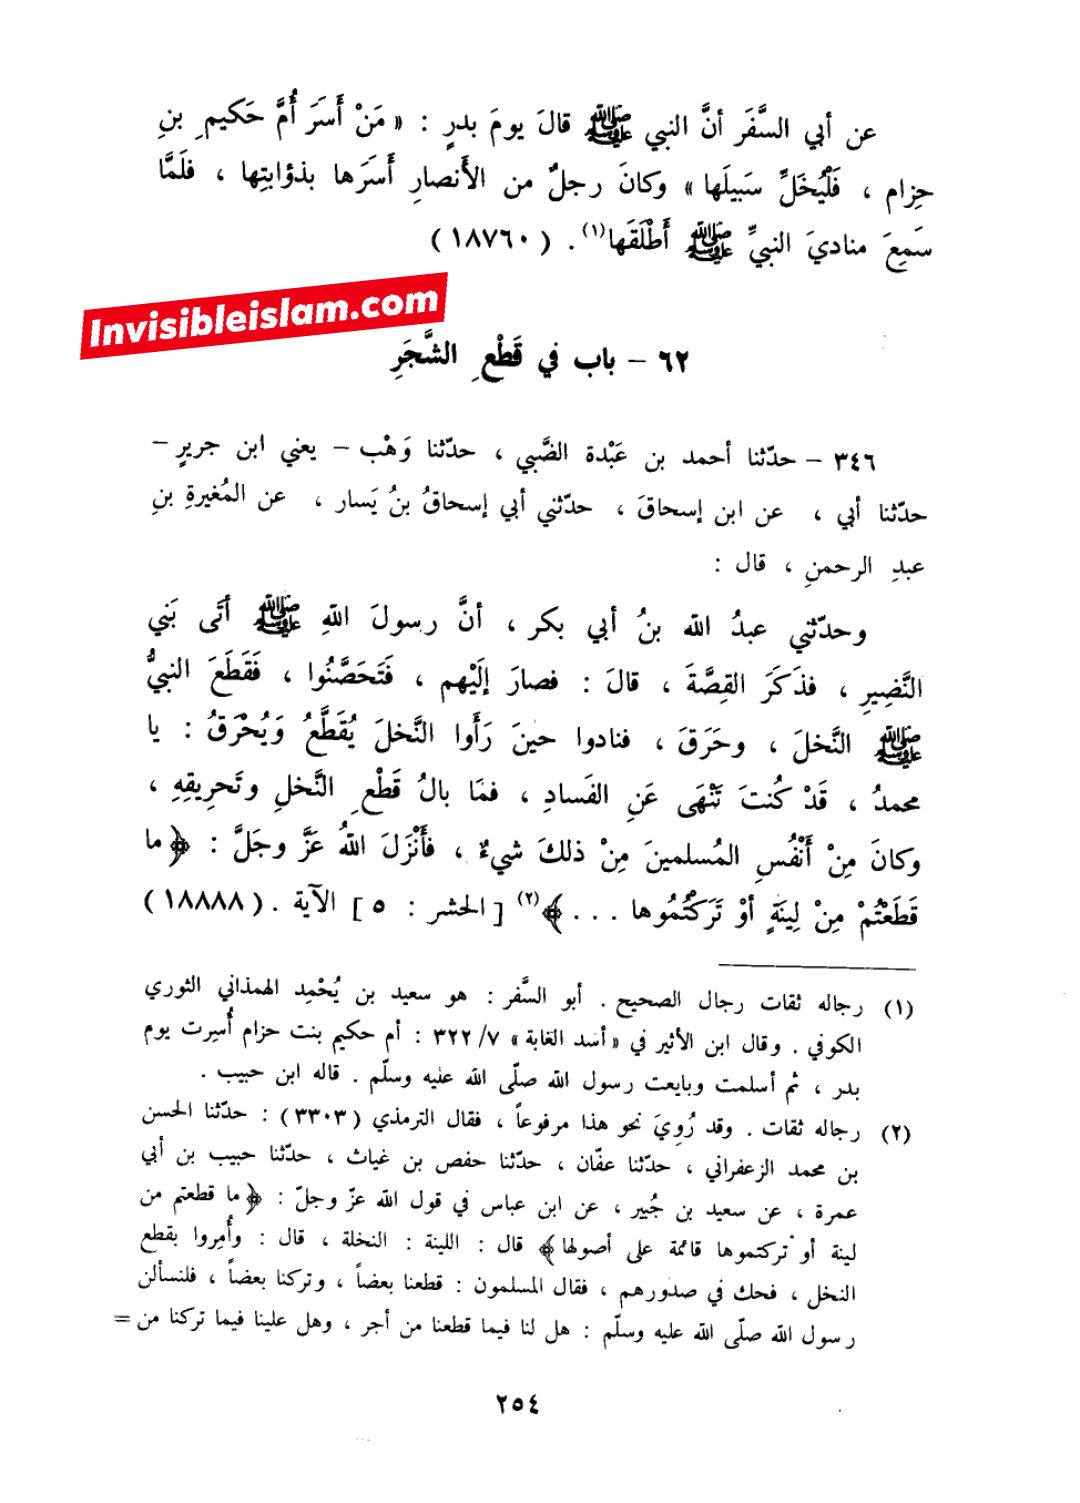 عن أبي السَّفَر أنَّ النبي ﷺ قالَ يومَ بدرٍ : « مَنْ أَسَرَ أُمَّ حَكيمِ بنِ
حِزام ، فَلْيُخَلِّ سَبيلَها » وكانَ رجلٌ من الأَنصارِ أَسَرَها بذؤابتِها ، فلَمَّا
سَمِعَ مناديَ النبيِّ ﷺ أَطْلَقَها(١) . ( ١٨٧٦٠ )
Invisibleislam.com
٦٢ – باب في قَطْعِ الشَّجَرِ
٣٤٦ – حدّثنا أحمد بن عَبْدة الضَّبي ، حدّثنا وَهْب – يعني ابن جريرٍ –
حدّثنا أبي ، عن ابن إسحاقَ ، حدّثني أبي إسحاقُ بنُ يَسار ، عن المُغيرةِ بنِ
عبدِ الرحمنِ ، قال :
وحدّثني عبدُ الله بنُ أبي بكر ، أنَّ رسولَ اللهِ ﷺ أتَى بَني
النَّضِيرِ ، فذَكَرَ القِصَّةَ ، قالَ : فصارَ إلَيْهم ، فَتَحَصَّنُوا ، فَقَطَعَ النبيُّ
ﷺ النَّخلَ ، وحَرَقَ ، فنادوا حينَ رَأَوا النَّخلَ يُقَطَّعُ وَيُحْرَقُ : يا
محمدُ ، قَدْ كُنتَ تَنْهَى عَنِ الفَسادِ ، فمَا بالُ قَطْعِ النَّخلِ وتَحرِيقِهِ ،
وكانَ مِنْ أَنْفُسِ المُسلمينَ مِنْ ذلكَ شيءٌ ، فأَنْزَلَ اللهُ عَزَّ وجَلَّ : ﴿ ما
قَطَعْتُمْ مِنْ لِينَةٍ أوْ تَرَكْتُمُوها . . . ﴾(٢) [ الحشر : ٥ ] الآية . ( ١٨٨٨٨ )
(١) رجاله ثقات رجال الصحيح . أبو السَّفر : هو سعيد بن يُحْمِد الهمذاني الثوري
الكوفي . وقال ابن الأثير في « أسد الغابة » ٣٢٢/٧ : أم حكيم بنت حزام أُسِرت يوم
بدر ، ثم أسلمت وبايعت رسول الله صلّى الله عليه وسلّم . قاله ابن حبيب .
(٢) رجاله ثقات . وقد رُوِيَ نحو هذا مرفوعاً ، فقال الترمذي ( ٣٣٠٣ ) : حدّثنا الحسن
بن محمد الزعفراني ، حدّثنا عفّان ، حدّثنا حفص بن غياث ، حدّثنا حبيب بن أبي
عمرة ، عن سعيد بن جُبير ، عن ابن عباس في قول الله عزّ وجلّ : ﴿ ما قطعتم من
لينة أو تركتموها قائمة على أصولها ﴾ قال : اللينة : النخلة ، قال : وأُمِروا بقطع
النخل ، فحك في صدورهم ، فقال المسلمون : قطعنا بعضاً ، وتركنا بعضاً ، فلنسألن
رسول الله صلّى الله عليه وسلّم : هل لنا فيما قطعنا من أجر ، وهل علينا فيما تركنا من =
٢٥٤